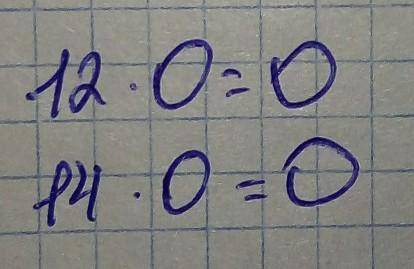 12 · 0 = 0
14 · 0 = 0